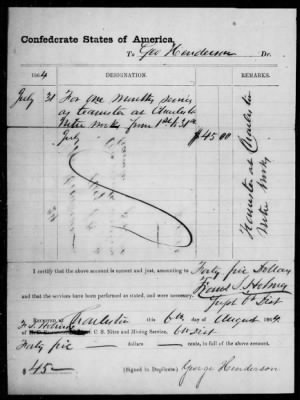 Confederate States of America,
To Geo Henderson Dr.
1864 DESIGNATION. REMARKS.
July 31 For one months service
as teamster at Charleston
Nitre works from 1st to 31st
July $45.00
Teamster at Charleston
Nitre Works
I certify that the above account is correct and just, amounting to Forty five Dollars
and that the services have been performed as stated, and were necessary.
Supt 6th Dist
RECEIVED AT Charleston this 6th day of August 1864,
C. S. Nitre and Mining Service, 6th Dist
Forty five dollars cents, in full of the above account.
$45 (Signed in Duplicate) George Henderson